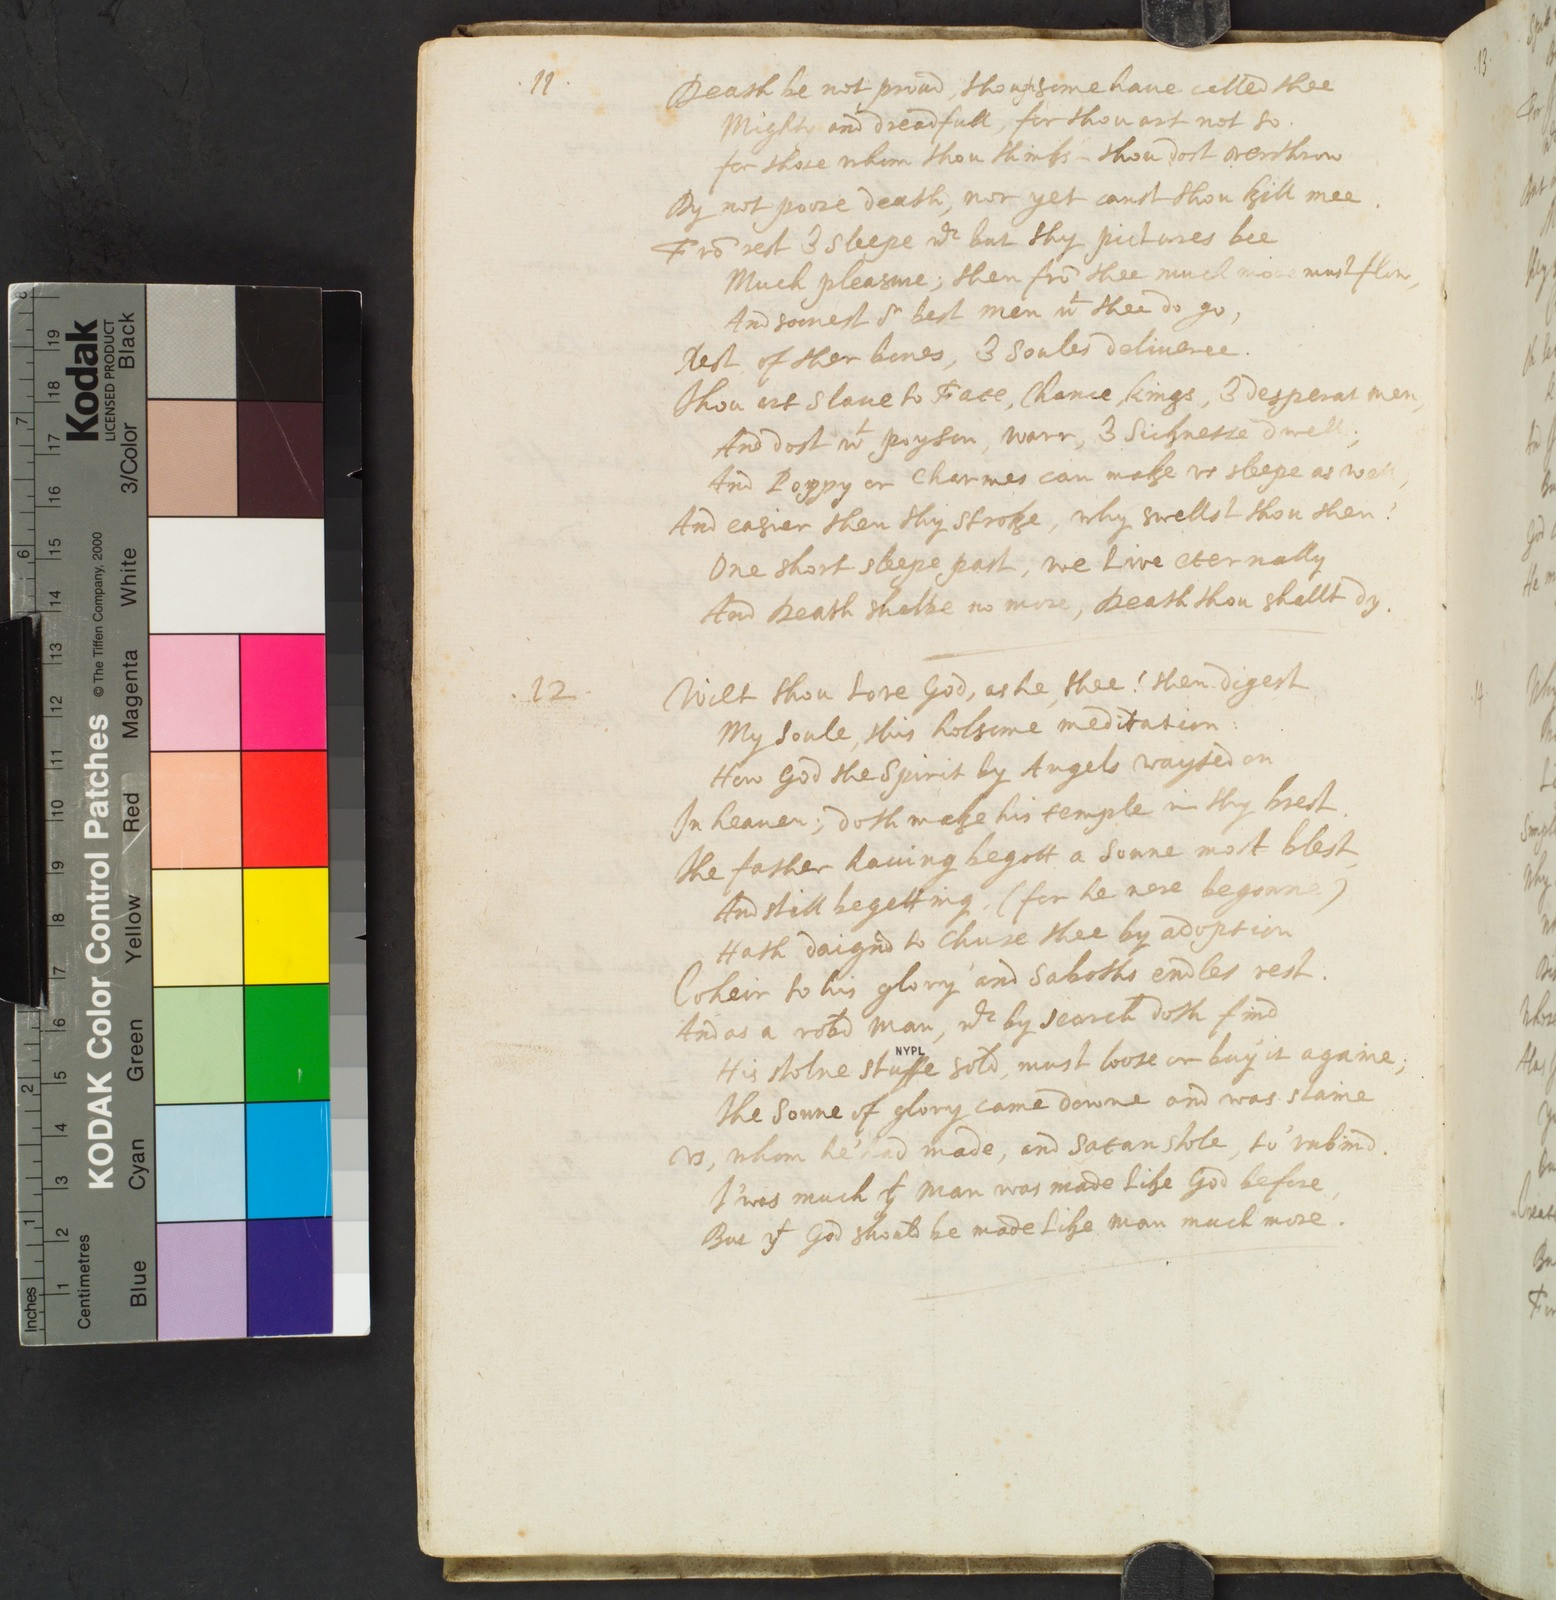 .11.
Death be not proud, though some haue called thee
Mighty and dreadfull, for thou art not so.
for those whom thou thinks thou dost overthrow
Dy not poore death, nor yet canst thou kill mee.
Frõ rest & sleepe wch but thy pictures bee
Much pleasure; then frõ thee much more must flow,
And soonest or best men wt thee do go,
Rest of ther bones, & Soules deliveree.
Thou art slaue to Fate, Chance, kings, & desperat men,
And dost wt poyson, warr, & Sicknesse dwell;
And Poppy or Charmes can make vs sleepe as well,
And easier then thy stroke, why swellst thou then?
One short sleepe past, we Live eternally
And Death shalbe no more, Death thou shallt dy.
.12.
Wilt thou Love God, as he, thee! then digest
My Soule, this holsome meditation:
How God the Spirit by Angels wayted on
In heauen; doth make his temple in thy brest.
The father hauing begott a Sonne most blest,
And still begetting, (for he nere begonne)
Hath daignd to Chuse thee by adoption
Coheir to his glory' and Saboths endles rest.
And as a robd Man, wch by search doth find
His stolne stuffe sold, must loose or buy'it againe;
The Sonne of glory came downe and was slaine
Vs, whom he'had made, and Satan stole, to'vnbind.
T'was much yt Man was made Like God before,
But yt God should be made Like man much more.
NYPL
13.
14
Kodak
LICENSED PRODUCT
KODAK Color Control Patches
© The Tiffen Company, 2000
Black
3/Color
White
Magenta
Red
Yellow
Green
Cyan
Blue
Inches
1
2
5
6
7
8
Centimetres
1
2
3
4
5
6
7
8
9
10
11
12
13
14
15
16
17
18
19